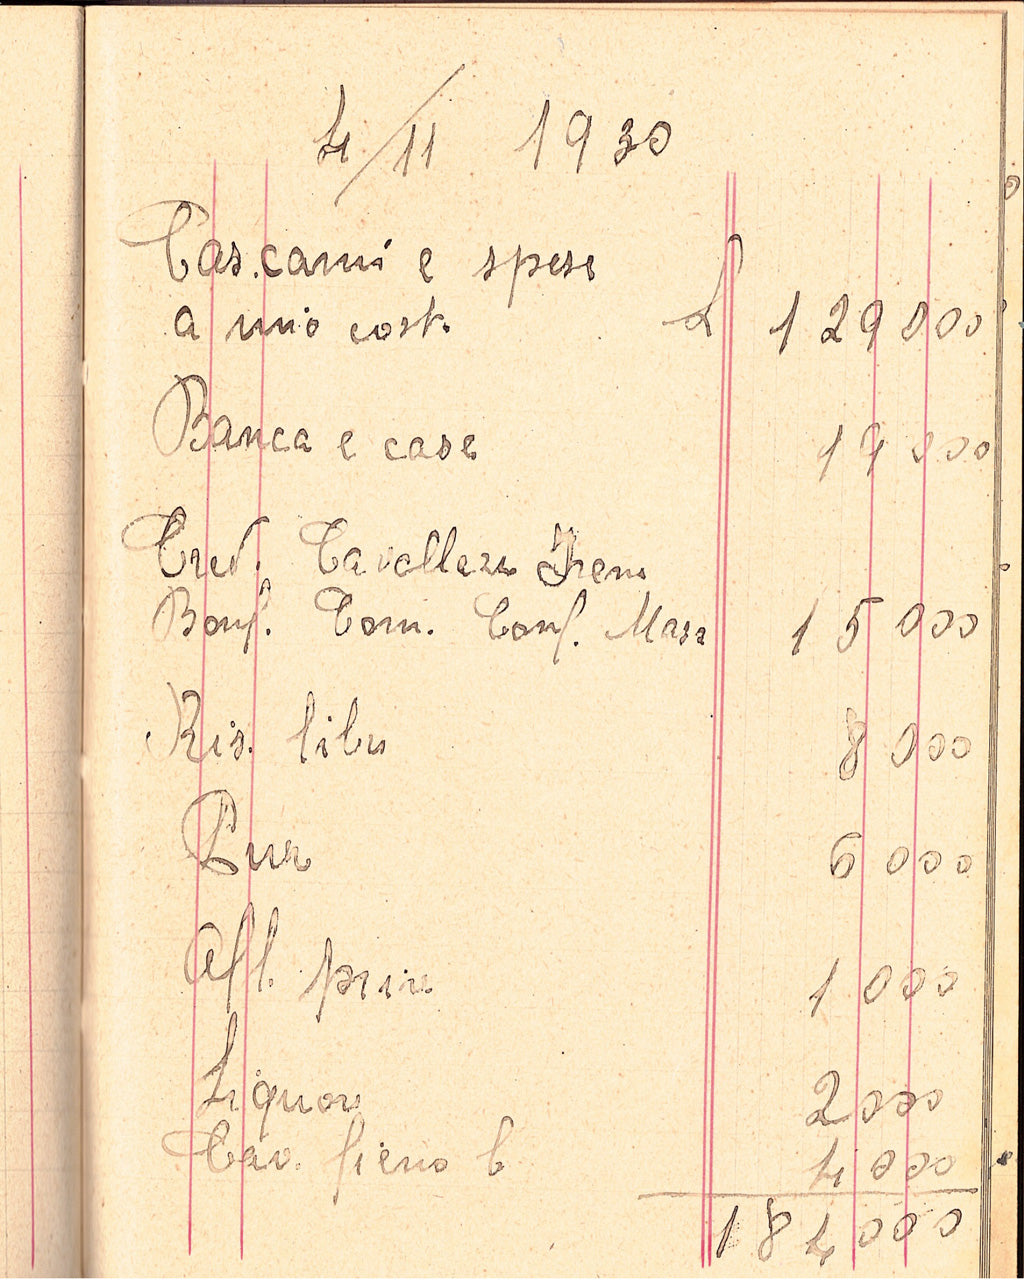 4/11 1930
Cascami e spese
a mio cost. £ 129000
Banca e case 19000
Cred. Cavallero Irene
Bonf. Com. Conf. Masr 15000
Ris. libr 8000
6000
Aff. prim 1000
Liquori 2000
Cav. fieno C 4000
184000